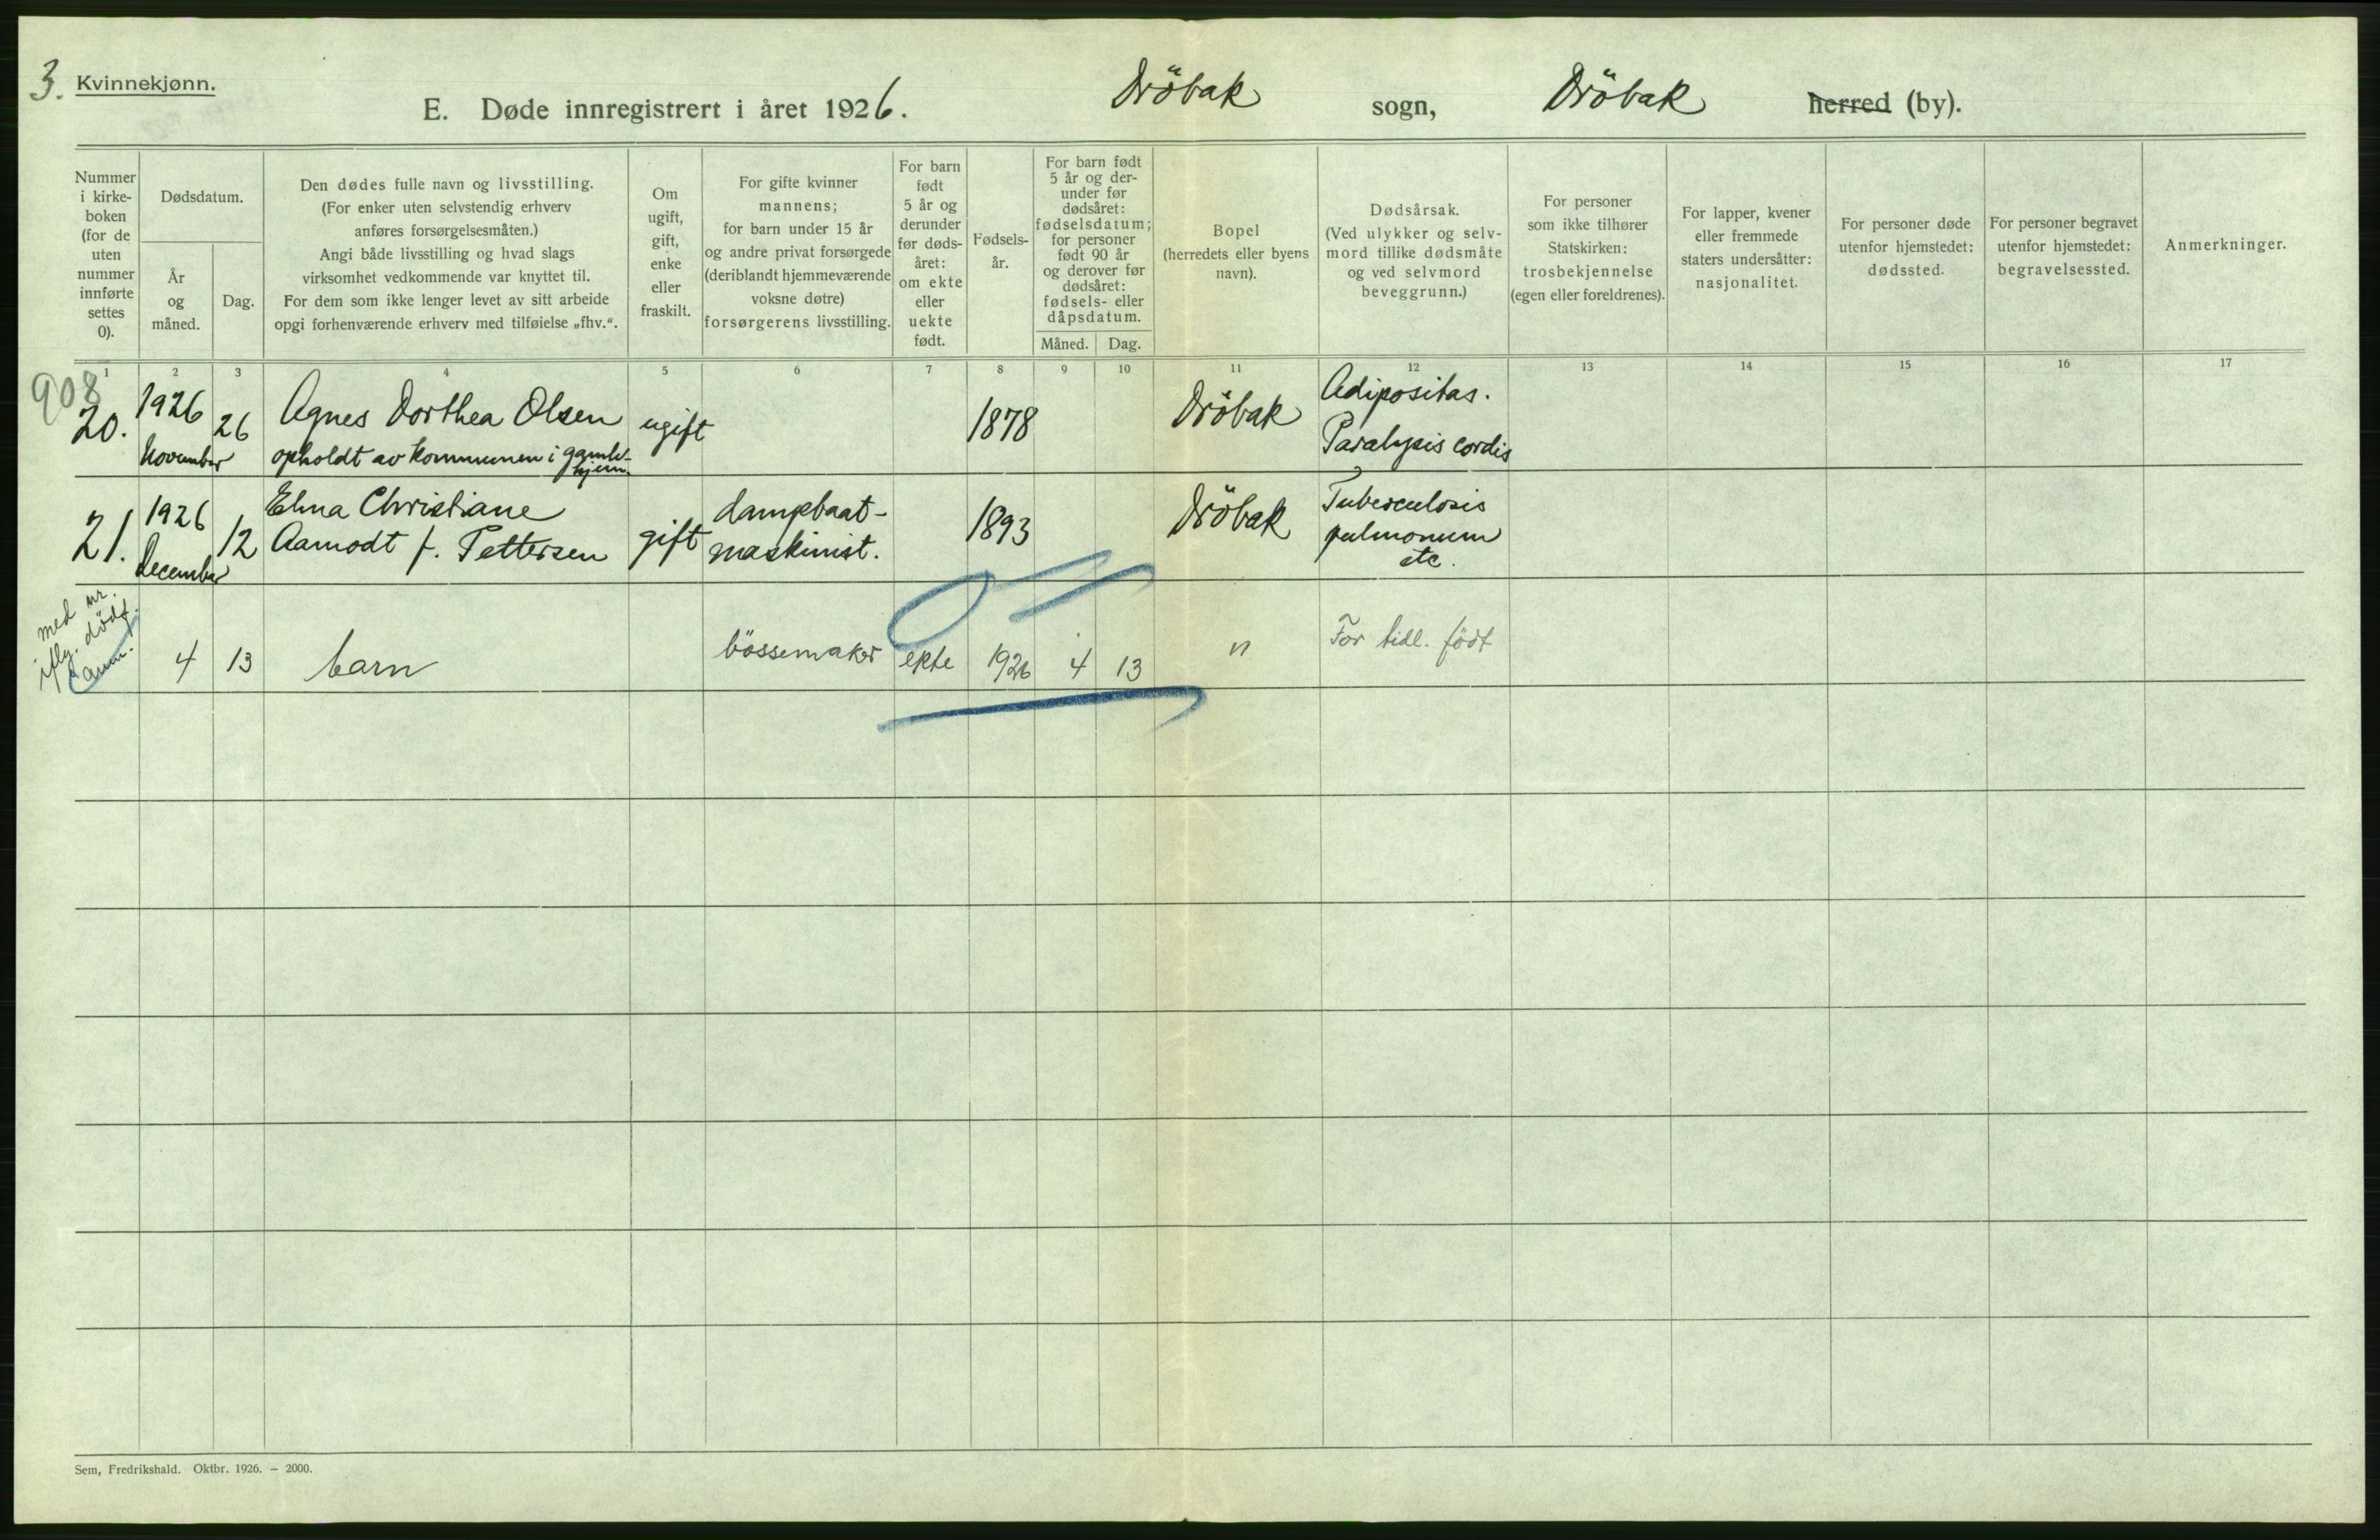 3. Kvinnekjønn.
E. Døde innregistrert i året 1926. Dröbak sogn, Dröbak herred (by).
Nummer
i kirke-
boken
(for de
uten
nummer
innførte
settes
0).
Dødsdatum.
År
og
måned.
Dag.
Den dødes fulle navn og livsstilling.
(For enker uten selvstendig erhverv
anføres forsørgelsesmåten.)
Angi både livsstilling og hvad slags
virksomhet vedkommende var knyttet til.
For dem som ikke lenger levet av sitt arbeide
opgi forhenværende erhverv med tilføielse „fhv.“.
Om
ugift,
gift,
enke
eller
fraskilt.
For gifte kvinner
mannens;
for barn under 15 år
og andre privat forsørgede
(deriblandt hjemmeværende
voksne døtre)
forsørgerens livsstilling.
For barn
født
5 år og
derunder
før døds-
året:
om ekte
eller
uekte
født.
Fødsels-
år.
For barn født
5 år og der-
under før
dødsåret:
fødselsdatum;
for personer
født 90 år
og derover før
dødsåret:
fødsels- eller
dåpsdatum.
Måned. Dag.
Bopel
(herredets eller byens
navn).
Dødsårsak.
(Ved ulykker og selv-
mord tillike dødsmåte
og ved selvmord
beveggrunn.)
For personer
som ikke tilhører
Statskirken:
trosbekjennelse
(egen eller foreldrenes).
For lapper, kvener
eller fremmede
staters undersåtter:
nasjonalitet.
For personer døde
utenfor hjemstedet:
dødssted.
For personer begravet
utenfor hjemstedet:
begravelsessted.
Anmerkninger.
1 2 3 4 5 6 7 8 9 10 11 12 13 14 15 16 17
908
20.
1926
November
26
Agnes Dorthea Olsen
opholdt av kommunen i gamle-
hjem.
ugift
1878
Dröbak
Adipositas.
Paralysis cordis
21.
1926
December
12
Elna Christiane
Aamodt f. Pettersen
gift
dampbaat-
maskinist.
1893
Dröbak
Tuberculosis
pulmonum
etc.
med nr.
iflg. dödf.
anm.
4
13
barn
bössemaker
ekte
1926
4
13
"
For tidl. födt
Sem, Fredrikshald. Oktbr. 1926. — 2000.